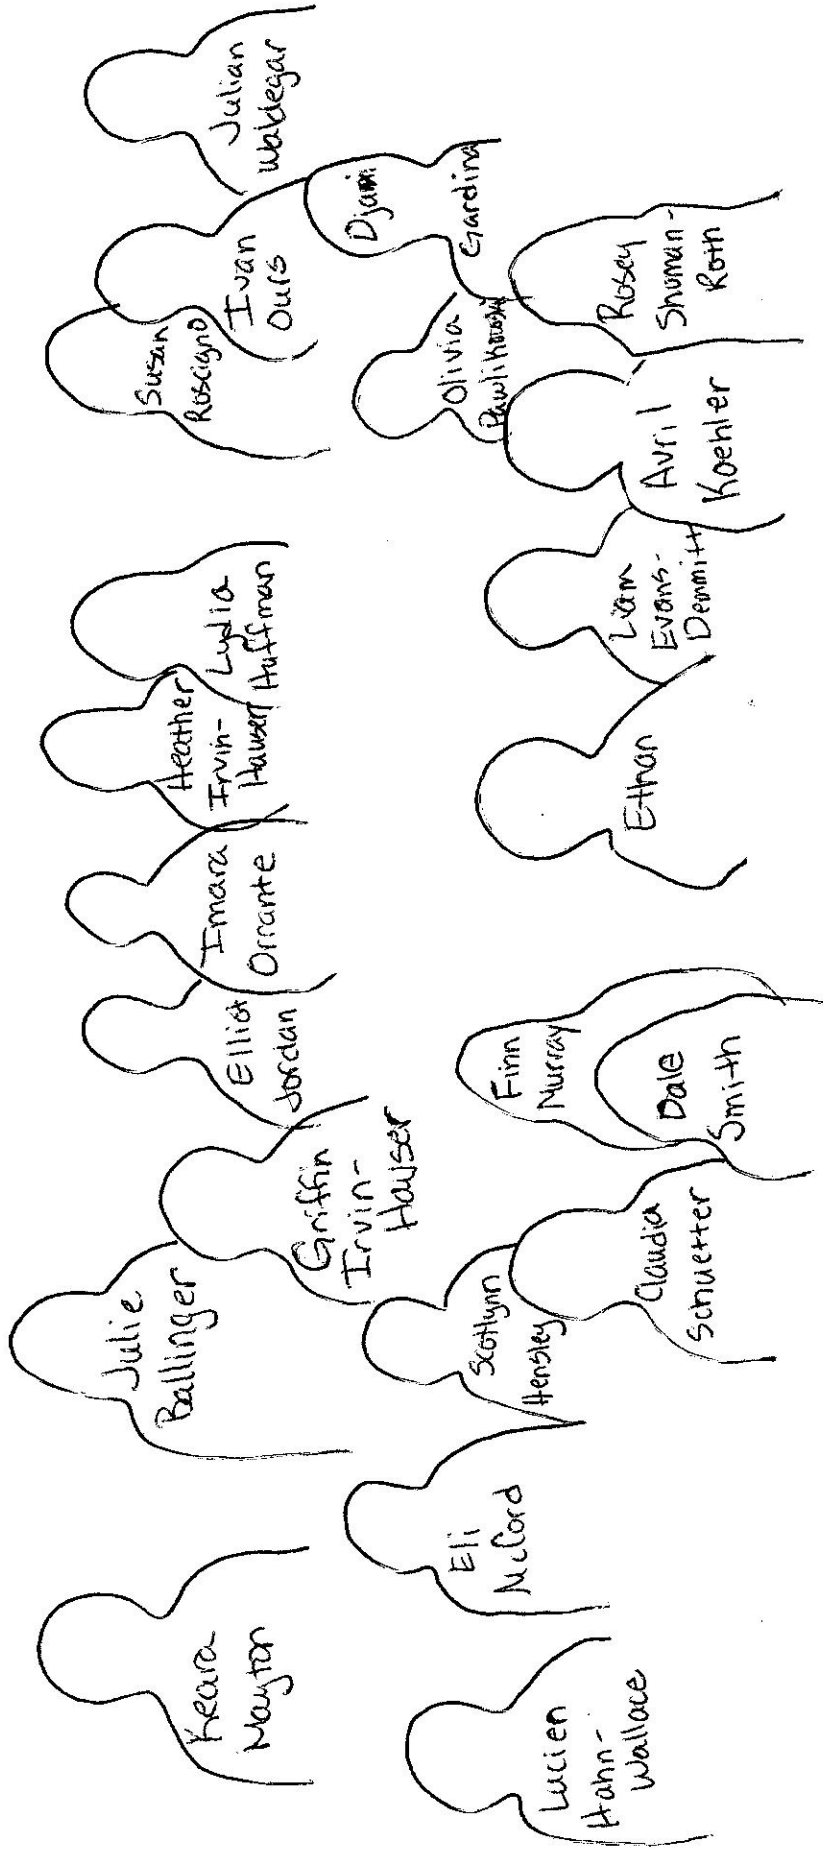 Keara
Mayton
Julie
Ballinger
Griffin
Irvin-
Hauser
Elliot
Jordan
Imara
Orrante
Heather
Irvin-
Hauser
Lydia
Huffman
Susan
Roscigno
Ivan
Ours
Julian
Waldegar
Lucien
Hahn-
Wallace
Eli
McCord
Scotlynn
Hensley
Claudia
Schuetter
Finn
Murray
Dale
Smith
Ethan
Liam
Evans-
Demmitt
Avril
Koehler
Olivia
Pawlikowski
Gardina
Rosey
Shuman-
Roth